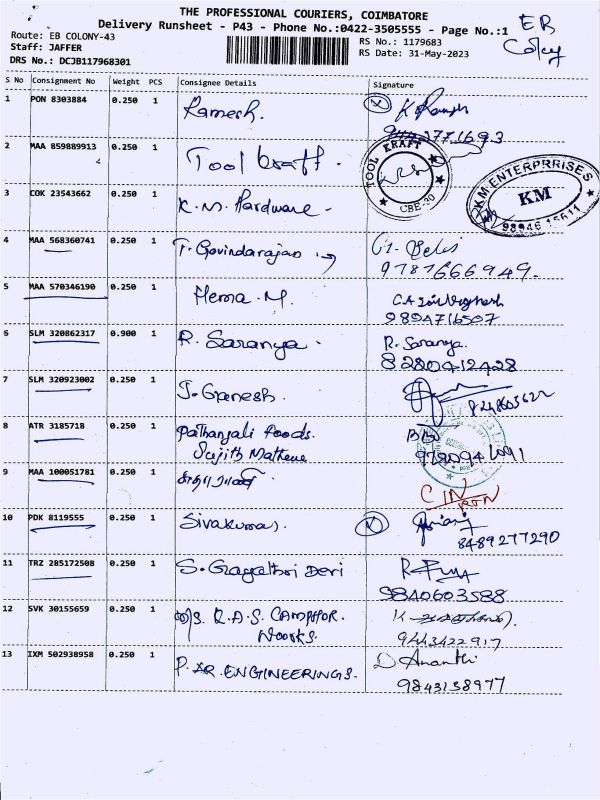 THE PROFESSIONAL COURIERS, COIMBATORE
Delivery Runsheet - P43 - Phone No.:0422-3505555 - Page No.:1
EB
Route: EB COLONY-43
RS No.: 1179683
Staff: JAFFER
RS Date: 31-May-2023
DRS No.: DCJB117968301
S No Consignment No Weight PCS Consignee Details Signature
1 PON 8303884 0.250 1 Ramesh.
2 MAA 859889913 0.250 1 Tool kraft.
TOOL KRAFT
CBE-30
3 COK 23543662 0.250 1 K.M. Hardware -
KM ENTERPRRISES
KM
4 MAA 568360741 0.250 1 T. Govindarajan
9787666949.
5 MAA 570346190 0.250 1 Hema .M.
9894716507
6 SLM 320862317 0.900 1 R. Saranya. R. Saranya.
8280412428
7 SLM 320923002 0.250 1 J. Ganesh.
8 ATR 3185718 0.250 1 Pathanjali foods.
Sujith Mathew
9 MAA 100051781 0.250 1
10 PDK 8119555 0.250 1 Sivakumar.
8489277290
11 TRZ 285172508 0.250 1 S. Gayathri Devi
9840603588
12 SVK 30155659 0.250 1 M/s. R.A.S. CAMPHOR.
Woorks.
9443422917
13 IXM 502938958 0.250 1 P. AR. ENGINEERINGS. D Ananthi
9843138977